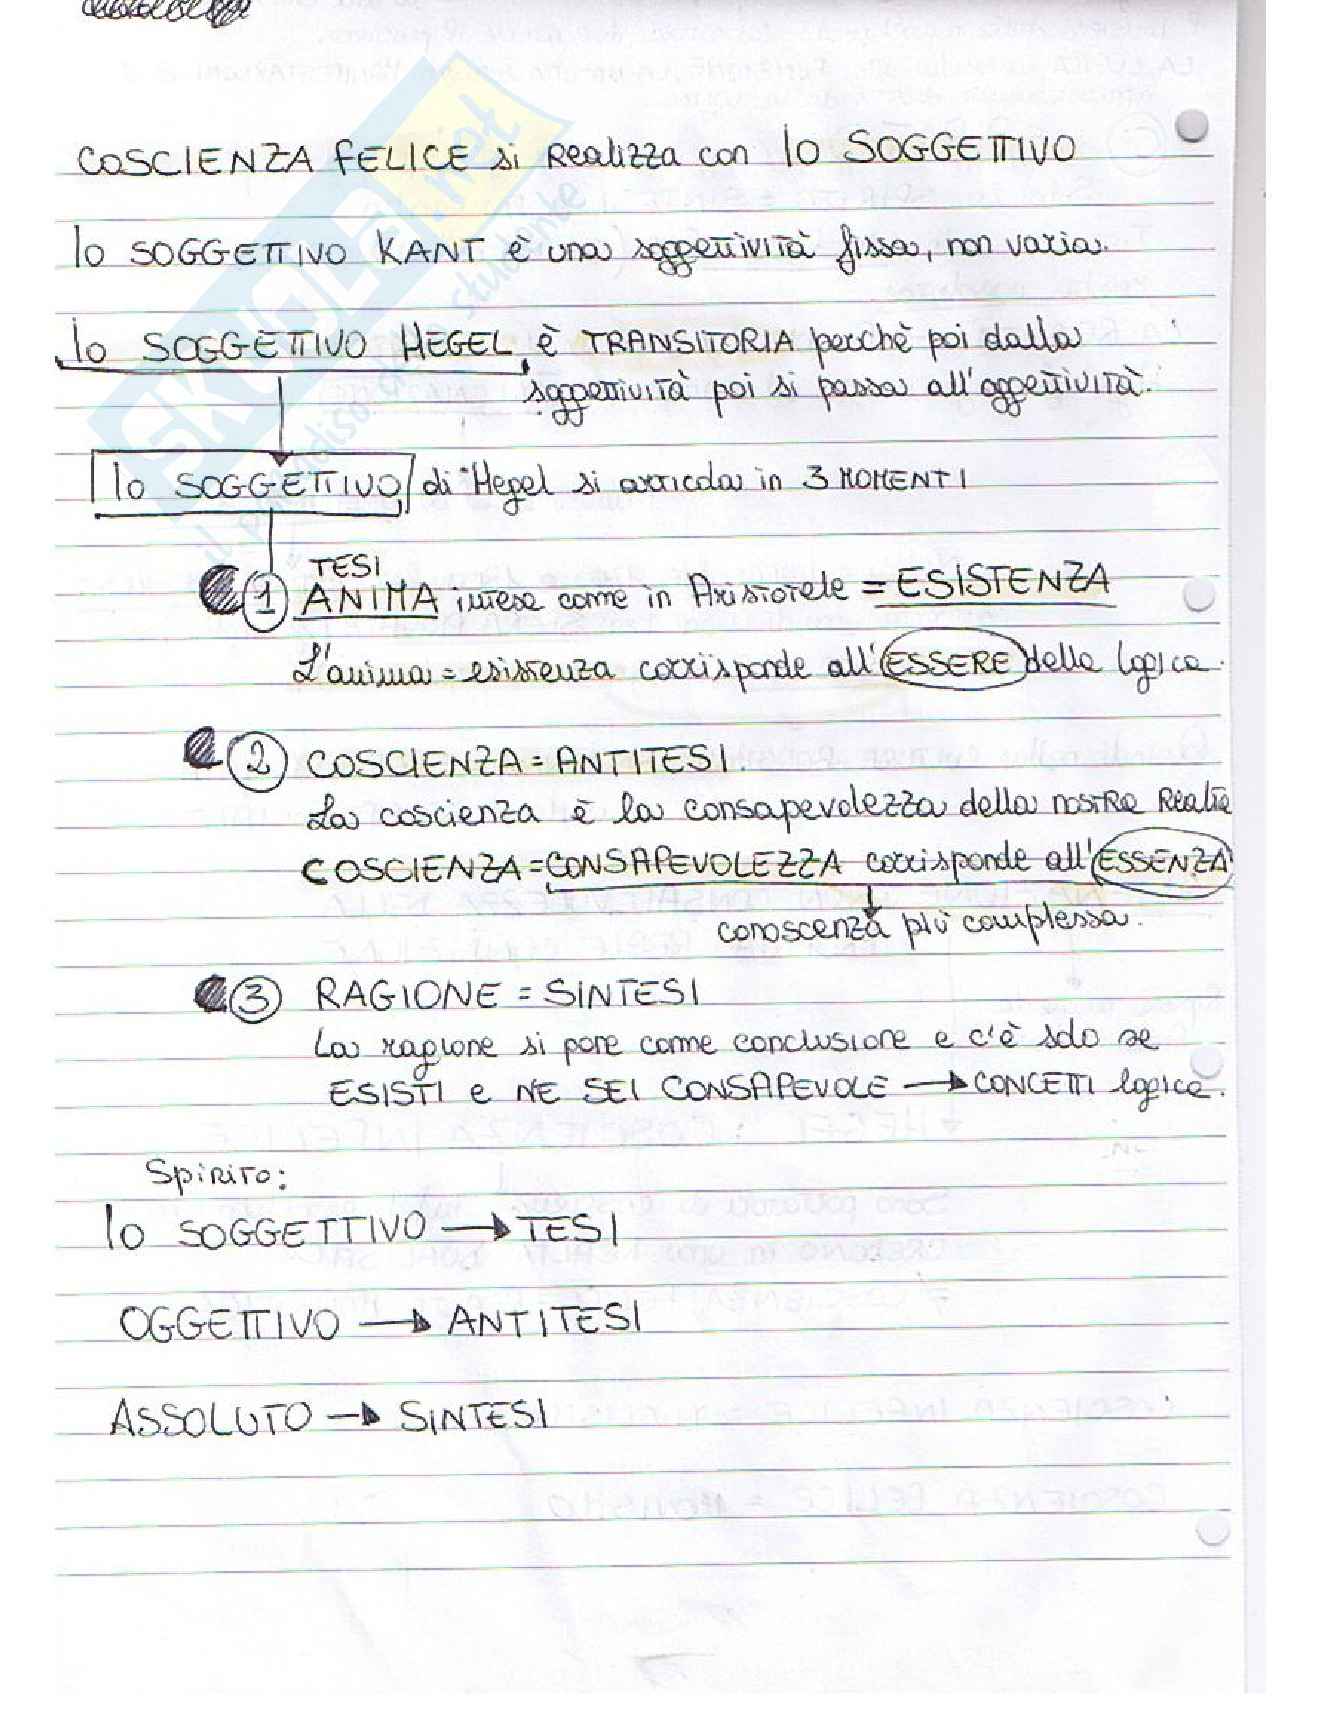 COSCIENZA FELICE si Realizza con lo SOGGETTIVO
lo SOGGETTIVO KANT è una soggettività fissa, non varia.
lo SOGGETTIVO HEGEL è TRANSITORIA perchè poi dalla
soggettività poi si passa all'oggettività.
lo SOGGETTIVO di Hegel si articola in 3 MOMENTI
TESI
1 ANIMA intesa come in Aristotele = ESISTENZA
L'anima = esistenza corrisponde all'ESSERE della logica.
2 COSCIENZA = ANTITESI.
La coscienza è la consapevolezza della nostra Realtà
COSCIENZA = CONSAPEVOLEZZA corrisponde all'ESSENZA
conoscenza più complessa.
3 RAGIONE = SINTESI
La ragione si pone come conclusione e c'è solo se
ESISTI e NE SEI CONSAPEVOLE → CONCETTI logica.
Spirito:
lo SOGGETTIVO → TESI
OGGETTIVO → ANTITESI
ASSOLUTO → SINTESI
SKUOLA.net
il paradiso dello studente